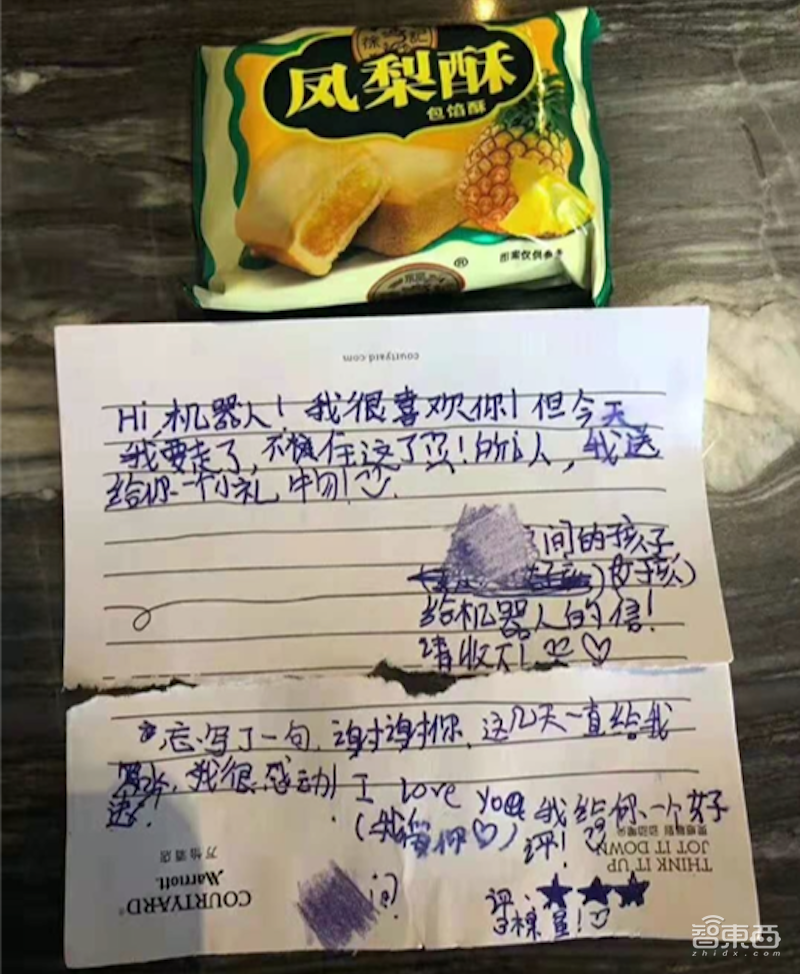 徐 记
凤梨酥
包馅酥
®
图案仅供参考
courtyard.com
Hi,机器人!我很喜欢你!但今天
我要走了,不能住这了!
给你一个小礼物!
间的孩子
(女孩)
给机器人的信!
请收下!♡
忘写了一句,谢谢你,这几天一直给我
送水,我很感动! I love you 我给你一个好
(我爱你♡) 评!
THINK IT UP
JOT IT DOWN
万怡酒店
COURTYARD®
Marriott.
间
评:★★★
3棵星!
智東西
zhidx.com